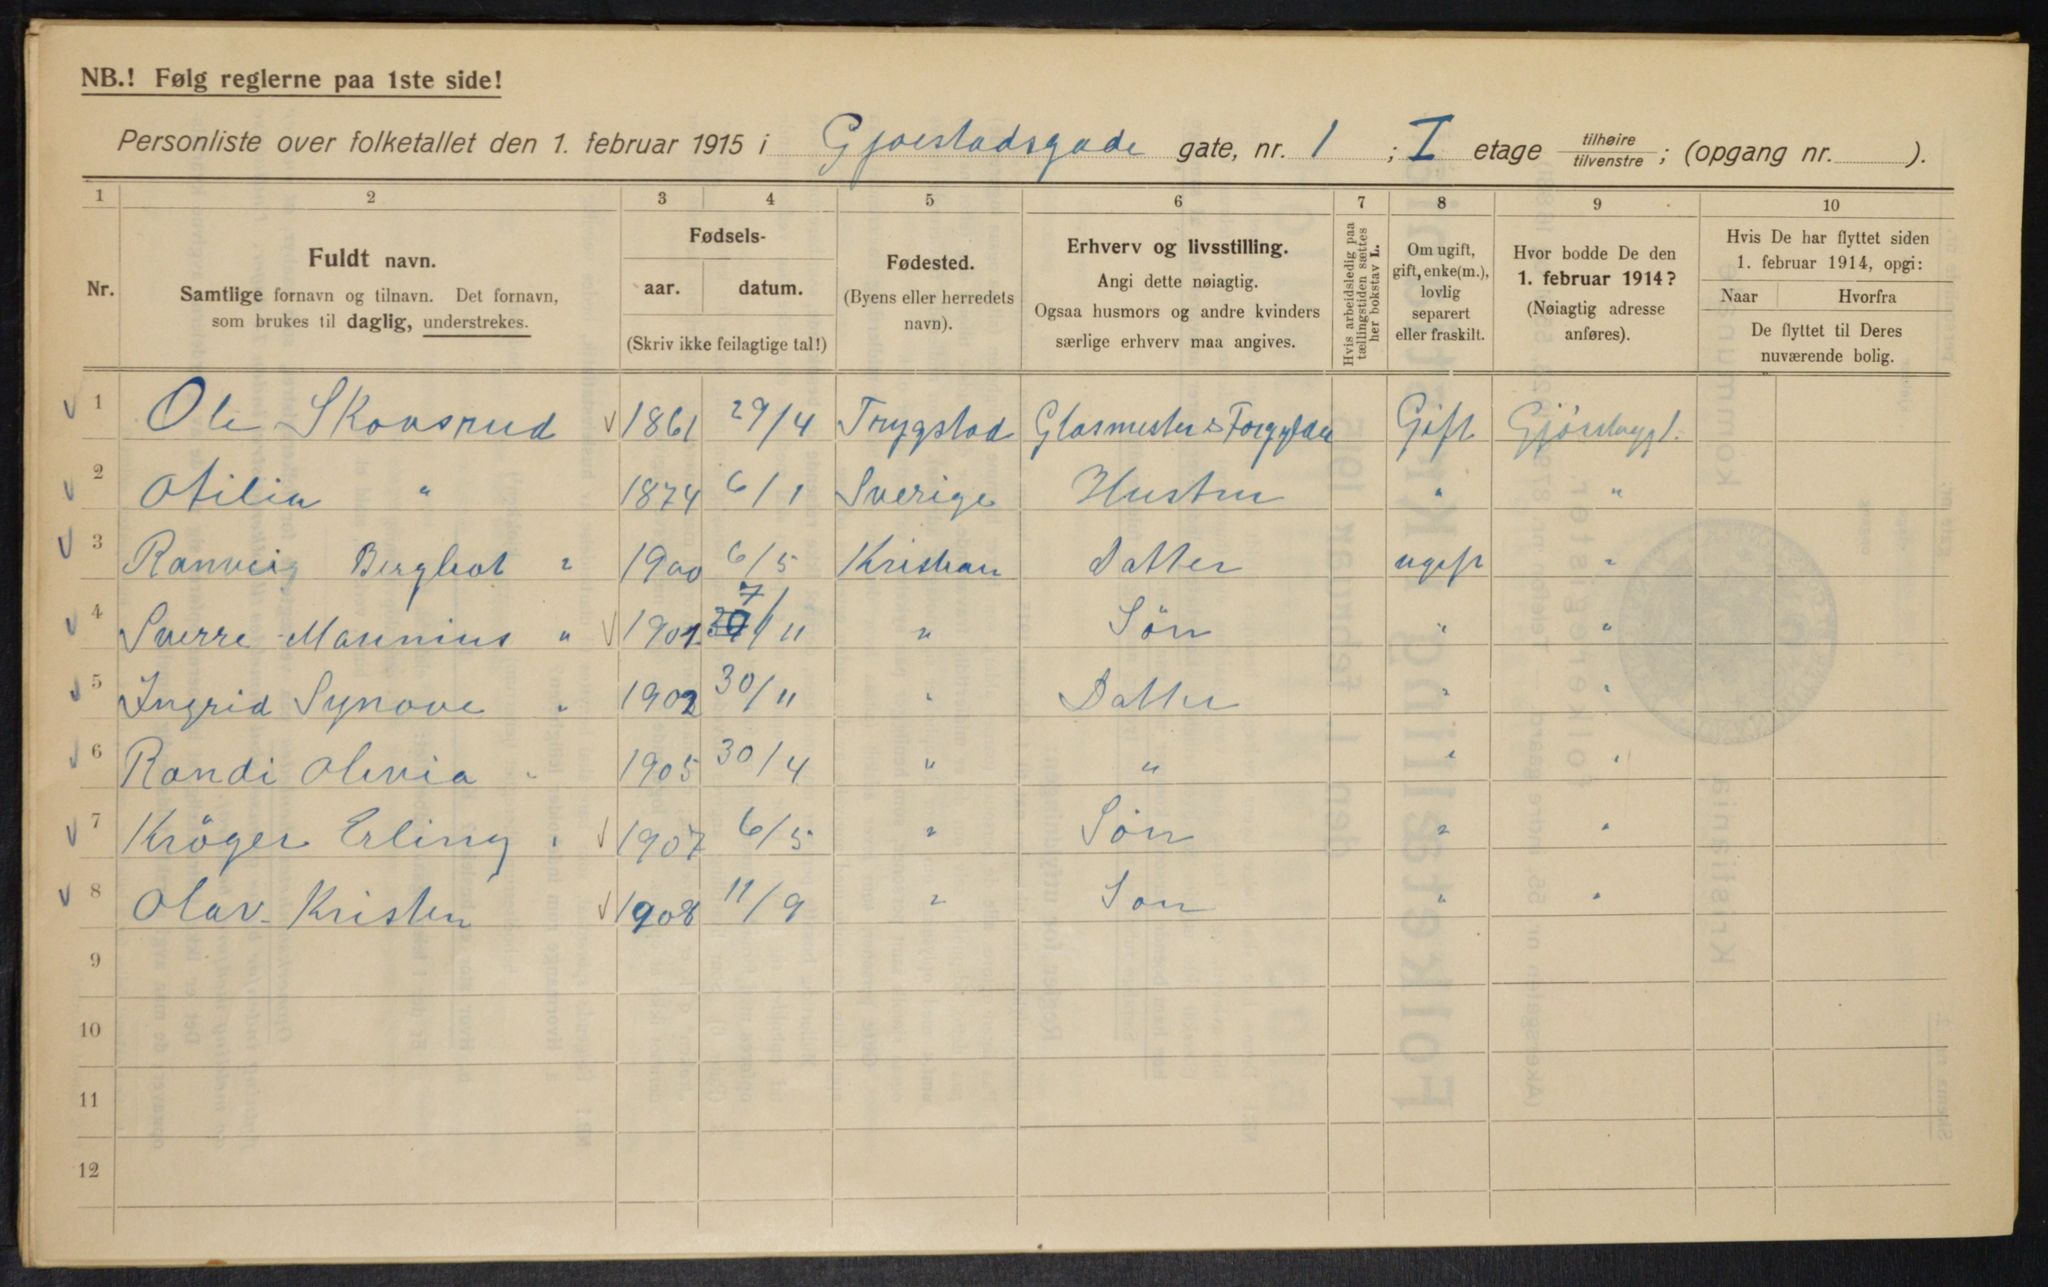 NB.! Følg reglerne paa 1ste side!
Personliste over folketallet den 1. februar 1915 i Gjøestadsgade gate, nr. 1 ; I etage tilhøire/tilvenstre ; (opgang nr. ).
1 2 3 4 5 6 7 8 9 10
Nr.
Fuldt navn.
Samtlige fornavn og tilnavn. Det fornavn,
som brukes til daglig, understrekes.
Fødsels-
aar. datum.
(Skriv ikke feilagtige tal!)
Fødested.
(Byens eller herredets
navn).
Erhverv og livsstilling.
Angi dette nøiagtig.
Ogsaa husmors og andre kvinders
særlige erhverv maa angives.
Hvis arbeidsledig paa
tællingstiden sættes
her bokstav L.
Om ugift,
gift, enke(m.),
lovlig
separert
eller fraskilt.
Hvor bodde De den
1. februar 1914?
(Nøiagtig adresse
anføres).
Hvis De har flyttet siden
1. februar 1914, opgi:
Naar Hvorfra
De flyttet til Deres
nuværende bolig.
1 Ole Skovsrud 1861 29/4 Trygstad Glasmester & Forgylder Gift
2 Otilia " 1874 6/1 Sverige Hustru " "
3 Ranveig Bergliot " 1900 6/5 Kristian Datter ugift "
4 Sverre Magnius " 1901 7/11 " Søn " "
5 Ingrid Synove " 1902 30/11 " Datter " "
6 Randi Olivia " 1905 30/4 " " " "
7 Krøger Erling " 1907 6/5 " Søn " "
8 Olav Kristen 1908 11/9 " Son " "
9
10
11
12